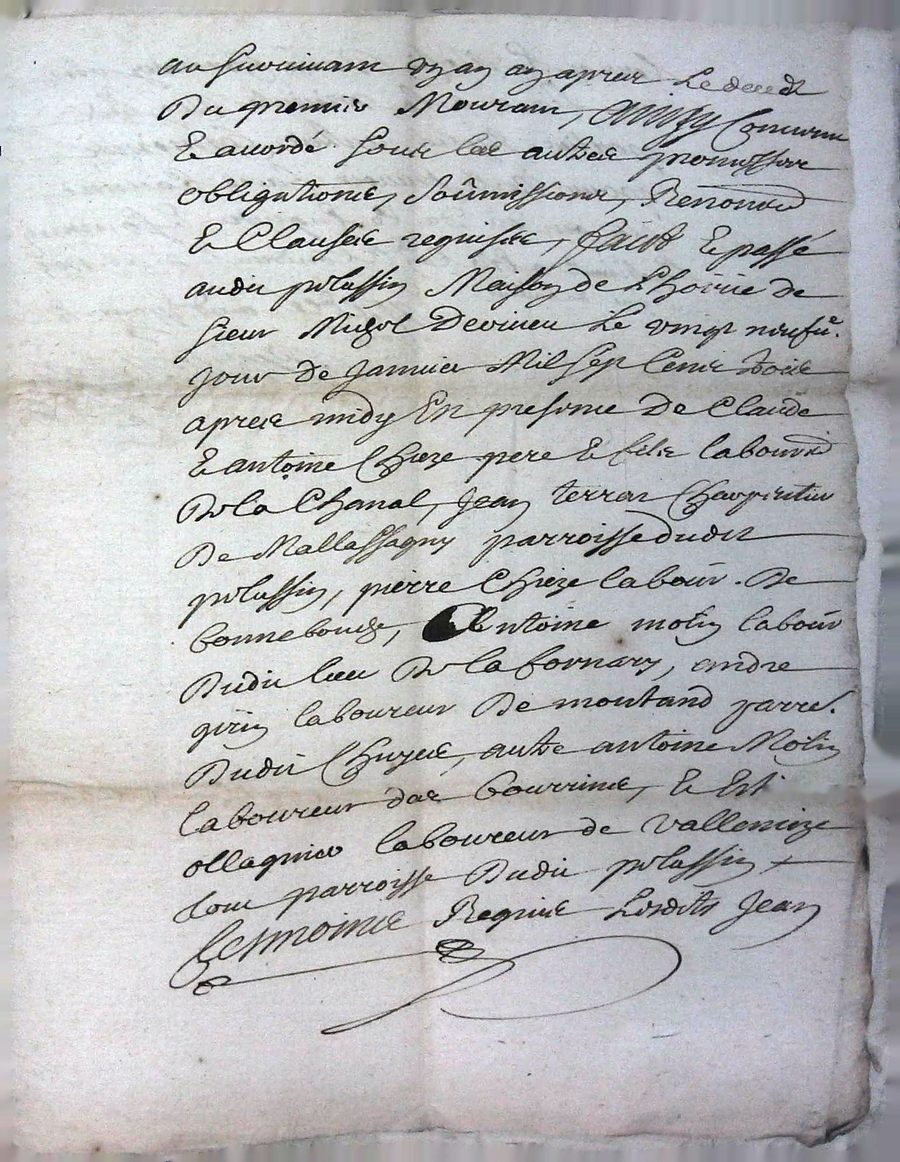 au survivant un an apres Le deceds
Du premier Mourant, Ainsy Convenu
Et accordé sous les autres promesses
obligations, soûmissions, Renonco
Et Clauses requises, faict Et passé
audit pelussin Maison de L'hoirie de
sieur Devineu Le vingt neufue.
jour de janvier Mil sept Cents trois
apres midy En presence De Claude
Et antoine Chieze pere Et fils labourd
De la Chanal, Jean terras Charpentier
De Mallassagny parroisse dudit
pelussin, pierre Chieze labour. De
bonnebouche, Antoine molin labour
Dudit lieu De la fornary, andre
girin laboureur De montand parre.
Dudit Chuyes, autre antoine Molin
laboureur das bourrines, Et Est
ollagnier laboureur de Vallemize
tous parroisse Dudit pelussin
tesmoins Requis Lesdits Jean